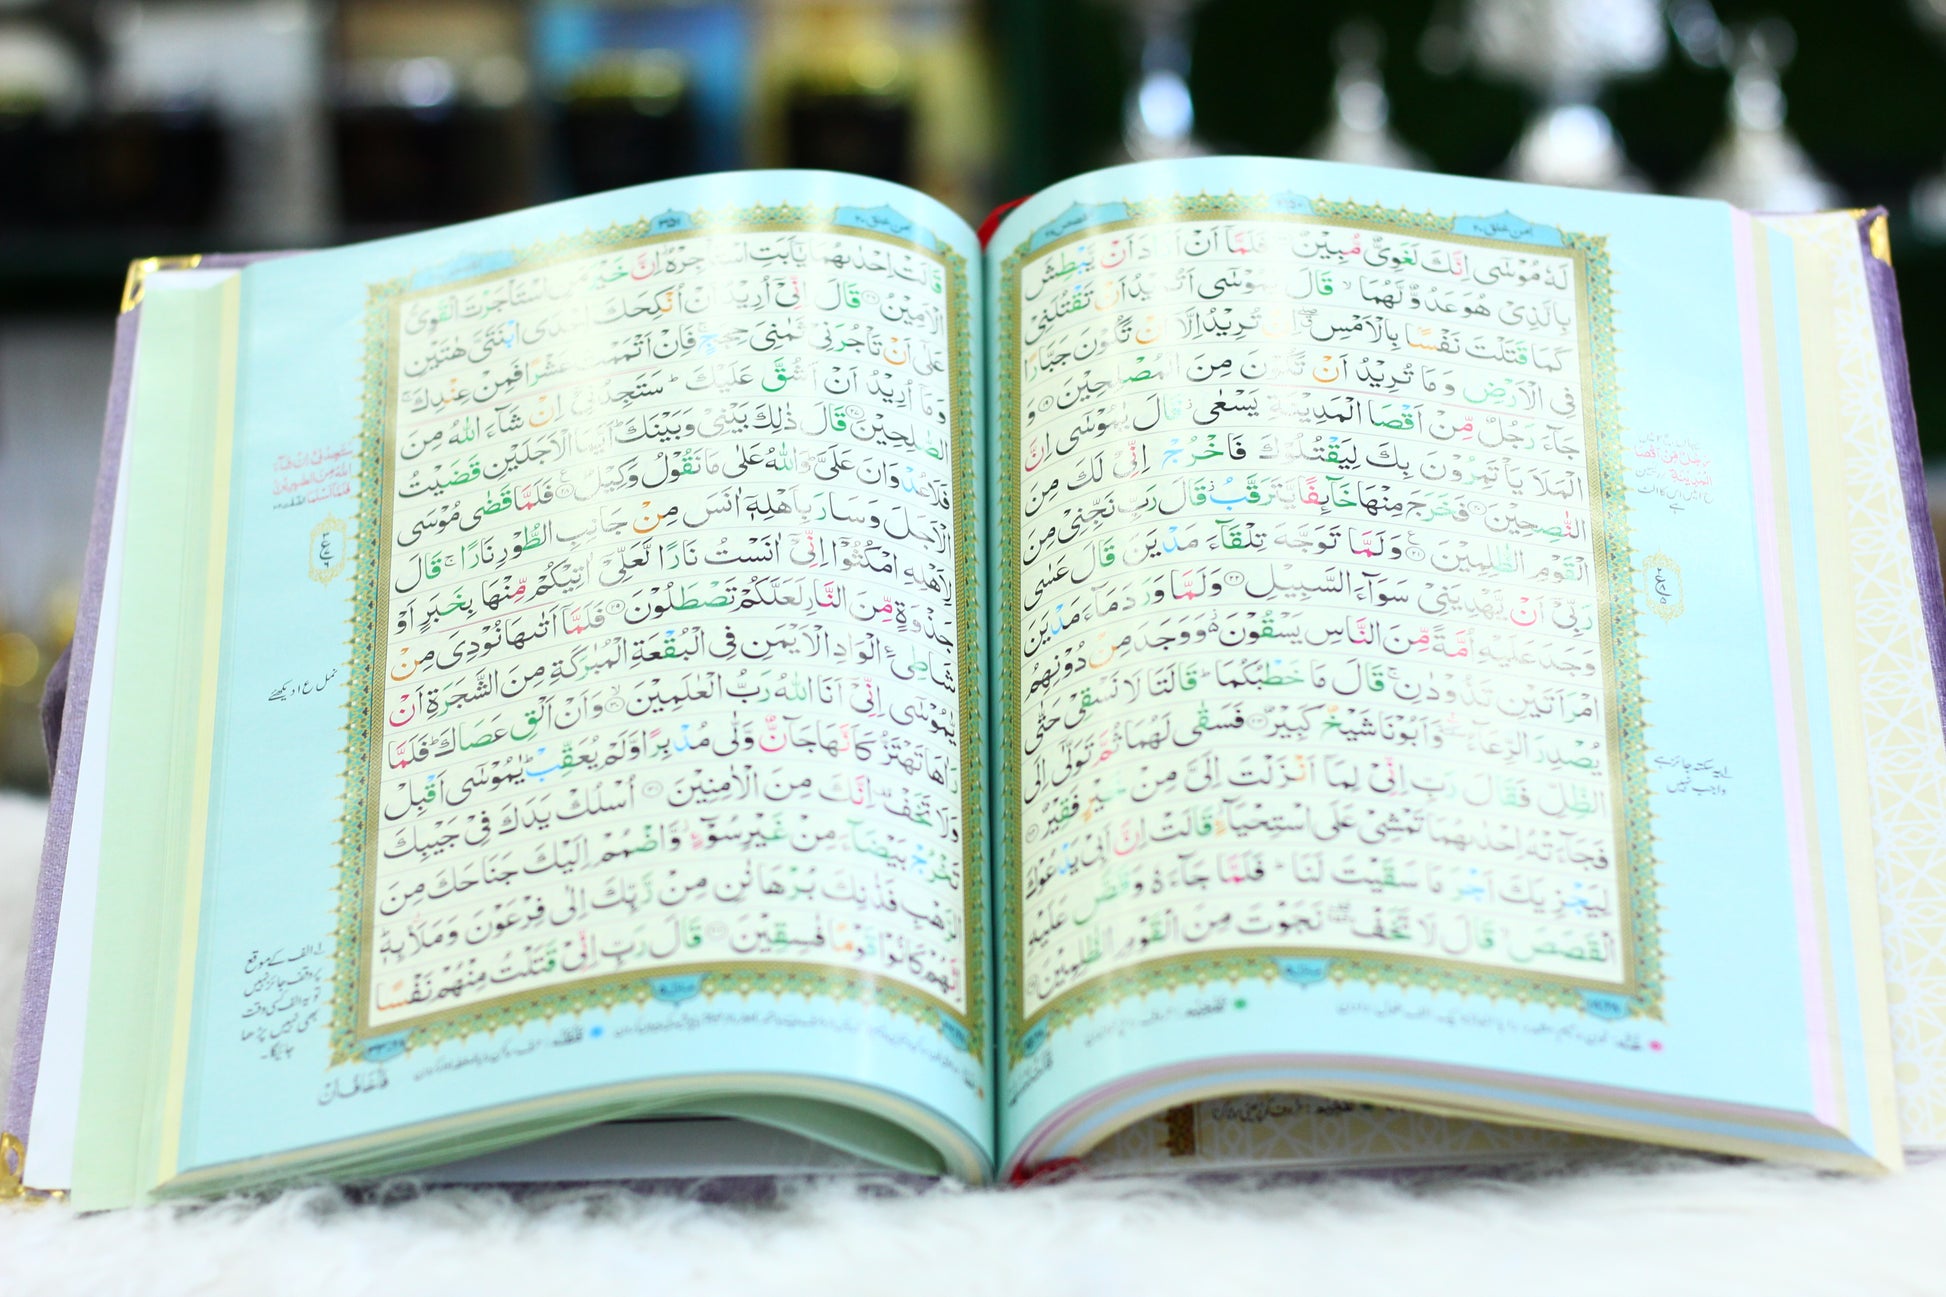 امن خلق ٢٠
القصص ٢٨
لَهٗ مُوْسٰۤى اِنَّكَ لَغَوِيٌّ مُّبِيْنٌ فَلَمَّاۤ اَنْ اَرَادَ اَنْ يَّبْطِشَ
بِالَّذِيْ هُوَ عَدُوٌّ لَّهُمَا ۙ قَالَ يٰمُوْسٰۤى اَتُرِيْدُ اَنْ تَقْتُلَنِيْ
كَمَا قَتَلْتَ نَفْسًۢا بِالْاَمْسِ ۖ اِنْ تُرِيْدُ اِلَّاۤ اَنْ تَكُوْنَ جَبَّارًا
فِي الْاَرْضِ وَمَا تُرِيْدُ اَنْ تَكُوْنَ مِنَ الْمُصْلِحِيْنَ ۝١٩ وَ
جَآءَ رَجُلٌ مِّنْ اَقْصَا الْمَدِيْنَةِ يَسْعٰى ۫ قَالَ يٰمُوْسٰۤى اِنَّ
الْمَلَاَ يَاْتَمِرُوْنَ بِكَ لِيَقْتُلُوْكَ فَاخْرُجْ اِنِّيْ لَكَ مِنَ
النّٰصِحِيْنَ ۝٢٠ فَخَرَجَ مِنْهَا خَآئِفًا يَّتَرَقَّبُ ۫ قَالَ رَبِّ نَجِّنِيْ مِنَ
الْقَوْمِ الظّٰلِمِيْنَ ۝٢١ وَلَمَّا تَوَجَّهَ تِلْقَآءَ مَدْيَنَ قَالَ عَسٰى
رَبِّيْۤ اَنْ يَّهْدِيَنِيْ سَوَآءَ السَّبِيْلِ ۝٢٢ وَلَمَّا وَرَدَ مَآءَ مَدْيَنَ
وَجَدَ عَلَيْهِ اُمَّةً مِّنَ النَّاسِ يَسْقُوْنَ ۬ وَوَجَدَ مِنْ دُوْنِهِمُ
امْرَاَتَيْنِ تَذُوْدٰنِ ۚ قَالَ مَا خَطْبُكُمَا ؕ قَالَتَا لَا نَسْقِيْ حَتّٰى
يُصْدِرَ الرِّعَآءُ ٚ وَاَبُوْنَا شَيْخٌ كَبِيْرٌ ۝٢٣ فَسَقٰى لَهُمَا ثُمَّ تَوَلّٰۤى اِلَى
الظِّلِّ فَقَالَ رَبِّ اِنِّيْ لِمَاۤ اَنْزَلْتَ اِلَيَّ مِنْ خَيْرٍ فَقِيْرٌ ۝٢٤
فَجَآءَتْهُ اِحْدٰىهُمَا تَمْشِيْ عَلَى اسْتِحْيَآءٍ ۫ قَالَتْ اِنَّ اَبِيْ يَدْعُوْكَ
لِيَجْزِيَكَ اَجْرَ مَا سَقَيْتَ لَنَا ؕ فَلَمَّا جَآءَهٗ وَقَصَّ عَلَيْهِ
الْقَصَصَ ۙ قَالَ لَا تَخَفْ ۫ نَجَوْتَ مِنَ الْقَوْمِ الظّٰلِمِيْنَ ۝٢٥
یہ سکتہ جائز ہے
واجب نہیں
امن خلق ٢٠
٣٥١
قَالَتْ اِحْدٰىهُمَا يٰۤاَبَتِ اسْتَاْجِرْهُ ۫ اِنَّ خَيْرَ مَنِ اسْتَاْجَرْتَ الْقَوِيُّ
الْاَمِيْنُ ۝٢٦ قَالَ اِنِّيْۤ اُرِيْدُ اَنْ اُنْكِحَكَ اِحْدَى ابْنَتَيَّ هٰتَيْنِ
عَلٰۤى اَنْ تَاْجُرَنِيْ ثَمٰنِيَ حِجَجٍ ۚ فَاِنْ اَتْمَمْتَ عَشْرًا فَمِنْ عِنْدِكَ ۚ
وَمَاۤ اُرِيْدُ اَنْ اَشُقَّ عَلَيْكَ ؕ سَتَجِدُنِيْۤ اِنْ شَآءَ اللّٰهُ مِنَ
الصّٰلِحِيْنَ ۝٢٧ قَالَ ذٰلِكَ بَيْنِيْ وَبَيْنَكَ ؕ اَيَّمَا الْاَجَلَيْنِ قَضَيْتُ
فَلَا عُدْوَانَ عَلَيَّ ؕ وَاللّٰهُ عَلٰى مَا نَقُوْلُ وَكِيْلٌ ۝٢٨ فَلَمَّا قَضٰى مُوْسَى
الْاَجَلَ وَسَارَ بِاَهْلِهٖۤ اٰنَسَ مِنْ جَانِبِ الطُّوْرِ نَارًا ۚ قَالَ
لِاَهْلِهِ امْكُثُوْۤا اِنِّيْۤ اٰنَسْتُ نَارًا لَّعَلِّيْۤ اٰتِيْكُمْ مِّنْهَا بِخَبَرٍ اَوْ
جَذْوَةٍ مِّنَ النَّارِ لَعَلَّكُمْ تَصْطَلُوْنَ ۝٢٩ فَلَمَّاۤ اَتٰىهَا نُوْدِيَ مِنْ
شَاطِئِ الْوَادِ الْاَيْمَنِ فِي الْبُقْعَةِ الْمُبٰرَكَةِ مِنَ الشَّجَرَةِ اَنْ
يّٰمُوْسٰۤى اِنِّيْۤ اَنَا اللّٰهُ رَبُّ الْعٰلَمِيْنَ ۝٣٠ وَاَنْ اَلْقِ عَصَاكَ ؕ فَلَمَّا
رَاٰهَا تَهْتَزُّ كَاَنَّهَا جَآنٌّ وَّلّٰى مُدْبِرًا وَّلَمْ يُعَقِّبْ ؕ يٰمُوْسٰۤى اَقْبِلْ
وَلَا تَخَفْ ۫ اِنَّكَ مِنَ الْاٰمِنِيْنَ ۝٣١ اُسْلُكْ يَدَكَ فِيْ جَيْبِكَ
تَخْرُجْ بَيْضَآءَ مِنْ غَيْرِ سُوْٓءٍ ۫ وَّاضْمُمْ اِلَيْكَ جَنَاحَكَ مِنَ
الرَّهْبِ فَذٰنِكَ بُرْهَانٰنِ مِنْ رَّبِّكَ اِلٰى فِرْعَوْنَ وَمَلَا۟ئِهٖ ؕ
اِنَّهُمْ كَانُوْا قَوْمًا فٰسِقِيْنَ ۝٣٢ قَالَ رَبِّ اِنِّيْ قَتَلْتُ مِنْهُمْ نَفْسًا
نمل ع ١ دیکھئے
الف کے موقع
پر وقف جائز نہیں
تو یہ الف کسی وقت
بھی نہیں پڑھا
جائیگا۔
فَاَخَافُ اَنْ